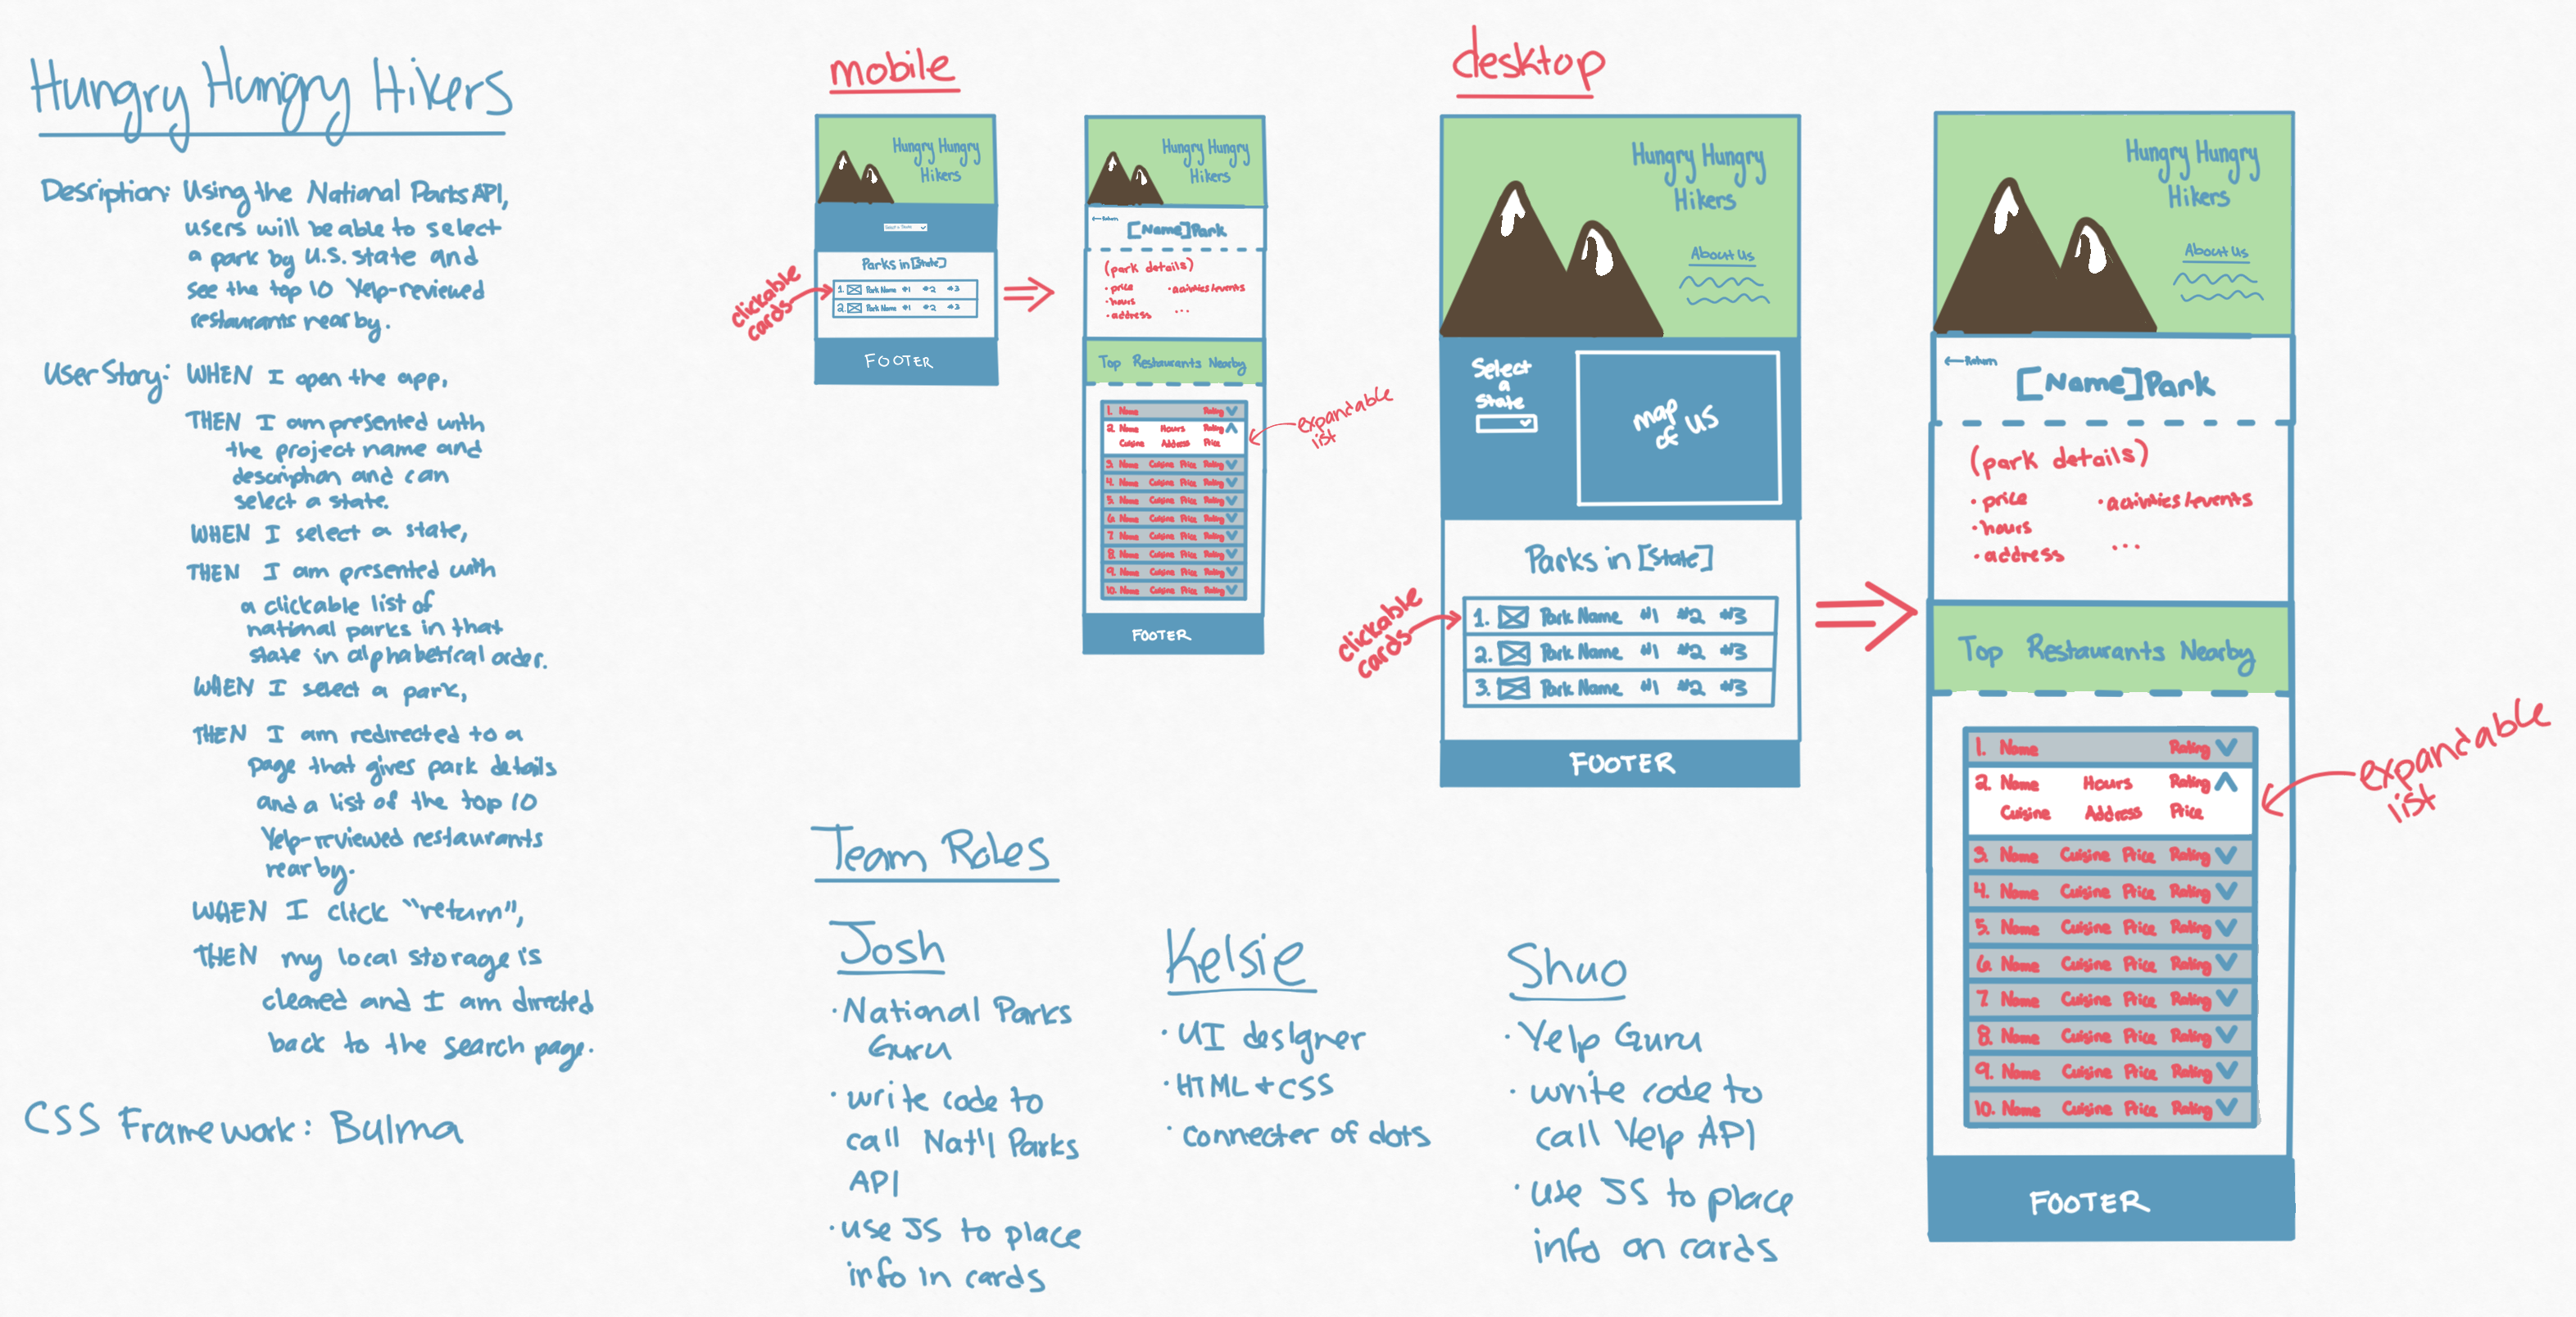 Hungry Hungry Hikers
Desription: Using the National Parks API,
users will be able to select
a park by U.S. state and
see the top 10 Yelp-reviewed
restaurants near by.
User Story: WHEN I open the app,
THEN I am presented with
the project name and
description and can
select a state.
WHEN I select a state,
THEN I am presented with
a clickable list of
national parks in that
state in alphabetical order.
WHEN I select a park,
THEN I am redirected to a
page that gives park details
and a list of the top 10
Yelp-reviewed restaurants
near by.
WHEN I click "return",
THEN my local storage is
cleared and I am directed
back to the search page.
CSS Framework: Bulma
mobile
Hungry Hungry
Hikers
Select a State
Parks in [State]
1. Park Name #1 #2 #3
2. Park Name #1 #2 #3
FOOTER
clickable
cards
Hungry Hungry
Hikers
Return
[Name] Park
(park details)
• price • activities/events
• hours
• address ...
Top Restaurants Nearby
1. Name Rating
2. Name Hours Rating
Cuisine Address Price
3. Name Cuisine Price Rating
4. Name Cuisine Price Rating
5. Name Cuisine Price Rating
6. Name Cuisine Price Rating
7. Name Cuisine Price Rating
8. Name Cuisine Price Rating
9. Name Cuisine Price Rating
10. Name Cuisine Price Rating
FOOTER
expandable
list
desktop
Hungry Hungry
Hikers
About Us
Select
a
State
map
of US
Parks in [State]
1. Park Name #1 #2 #3
2. Park Name #1 #2 #3
3. Park Name #1 #2 #3
FOOTER
clickable
cards
Hungry Hungry
Hikers
About Us
Return
[Name] Park
(park details)
• price • activities/events
• hours
• address ...
Top Restaurants Nearby
1. Name Rating
2. Name Hours Rating
Cuisine Address Price
3. Name Cuisine Price Rating
4. Name Cuisine Price Rating
5. Name Cuisine Price Rating
6. Name Cuisine Price Rating
7. Name Cuisine Price Rating
8. Name Cuisine Price Rating
9. Name Cuisine Price Rating
10. Name Cuisine Price Rating
FOOTER
expandable
list
Team Roles
Josh
• National Parks
Guru
• write code to
call Nat'l Parks
API
• use JS to place
info in cards
Kelsie
• UI designer
• HTML + CSS
• connecter of dots
Shuo
• Yelp Guru
• write code to
call Yelp API
• use JS to place
info on cards